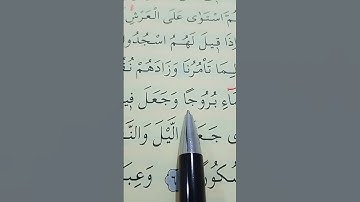 ثُمَّ اسْتَوَىٰ عَلَى الْعَرْشِ
وَإِذَا قِيلَ لَهُمُ اسْجُدُوا
لِمَا تَأْمُرُنَا وَزَادَهُمْ نُفُ
بُرُوجًا وَجَعَلَ فِيهَ
جَعَلَ الَّيْلَ وَالنَّ
شُكُورًا ٦ وَعِبَ